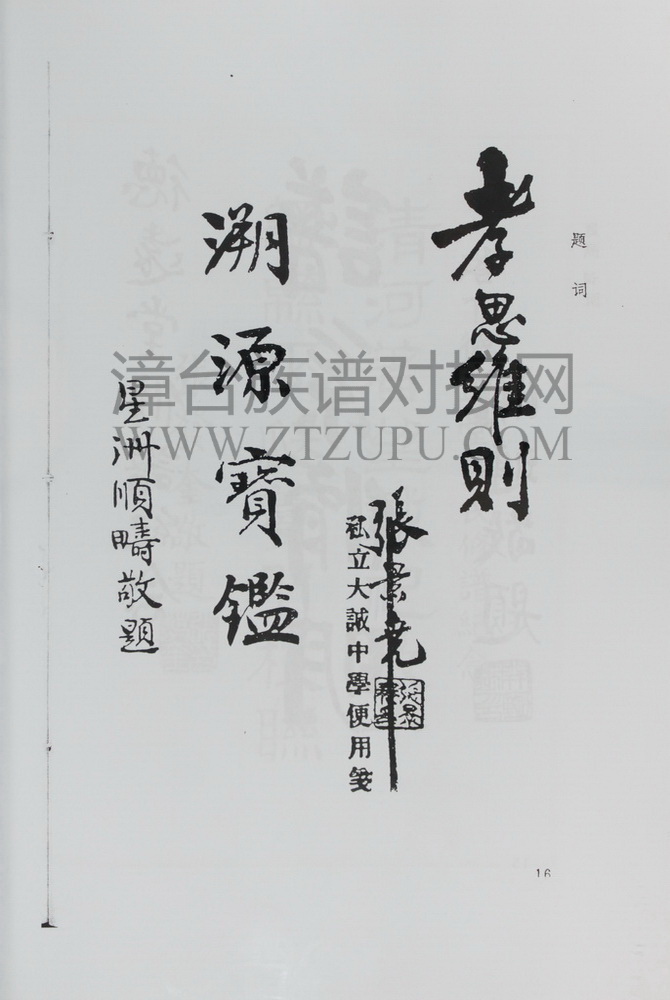 题词
孝思維則
張景堯
私立大誠中學便用箋
溯源寶鑑
星洲順疇敬題
漳台族谱对接网
WWW.ZTZUPU.COM
16